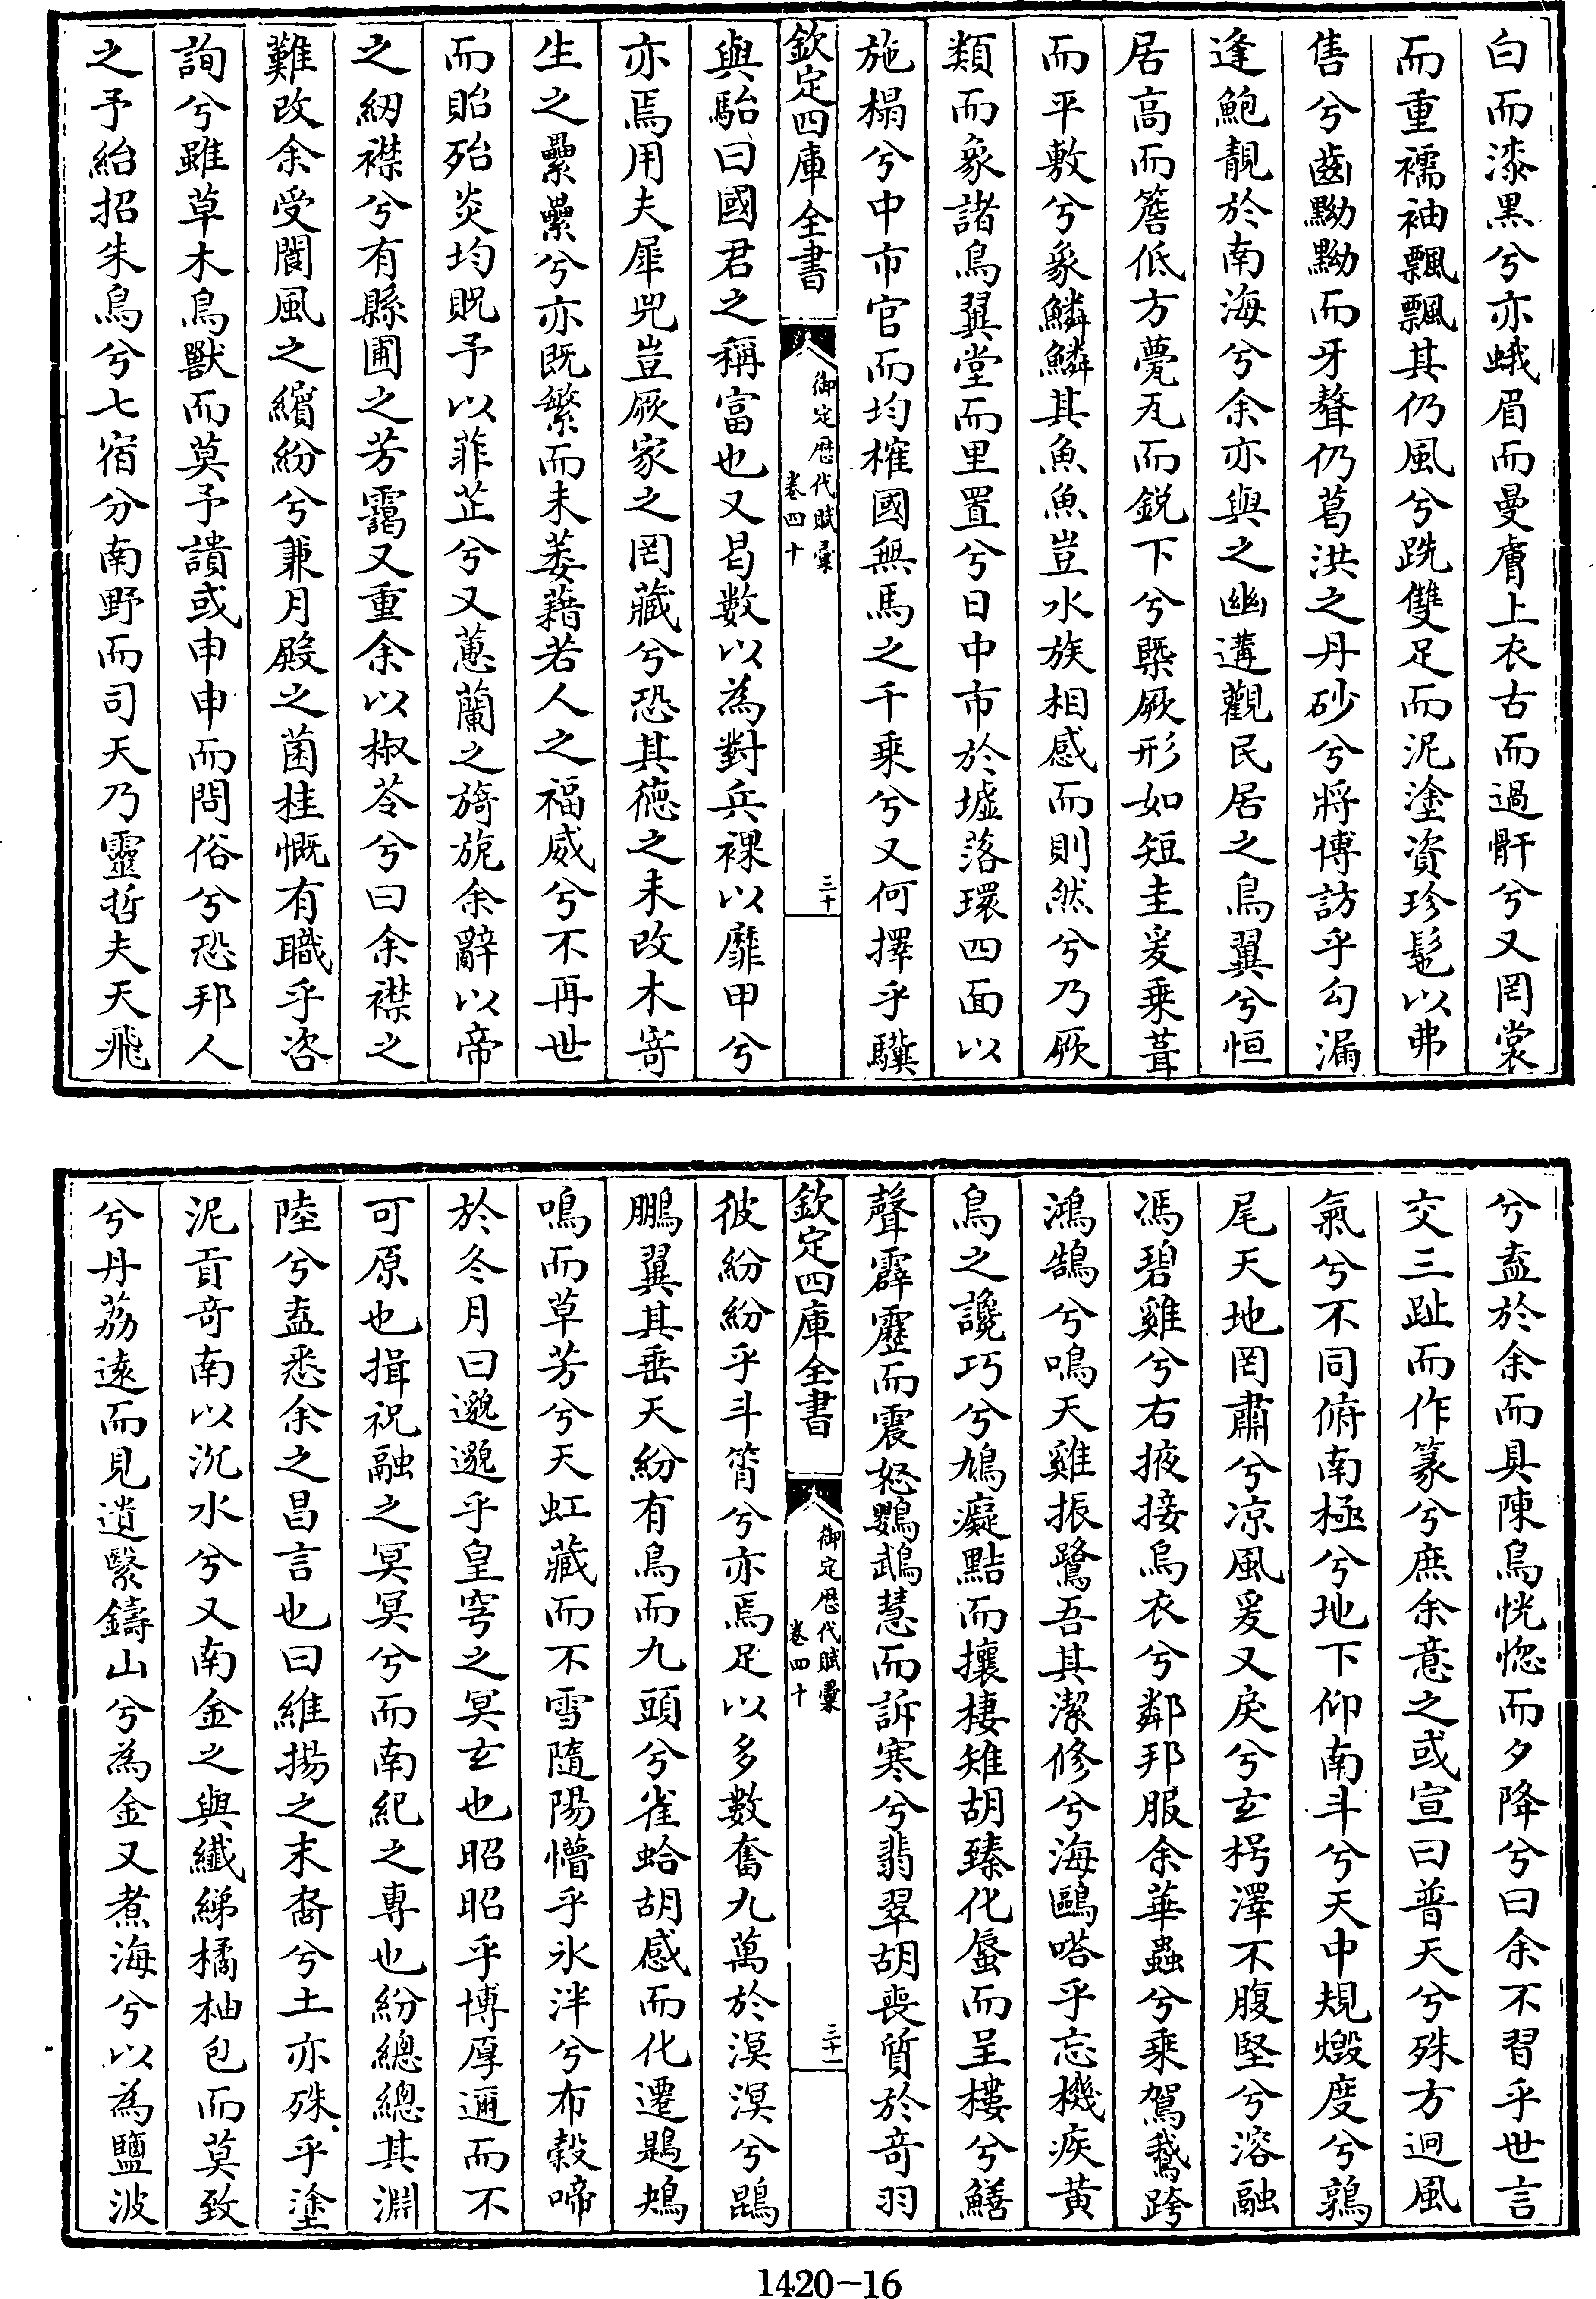 白而漆黒兮亦蛾眉而曼膚上衣古而過骭兮又罔裳
而重襦袖飄飄其仍風兮跣雙足而泥塗資珍髢以弗
售兮齒黝黝而牙聱仍葛洪之丹砂兮將博訪乎勾漏
逢鮑靚於南海兮余亦與之幽遘觀民居之鳥翼兮恒
居高而簷低方甍瓦而鋭下兮槩厥形如短圭爰乗葺
而平敷兮象鱗鱗其魚魚豈水族相感而則然兮乃厥
類而象諸鳥翼堂而里置兮日中市於墟落環四面以
施榻兮中市官而均榷國無馬之千乗兮又何擇乎驥
欽定四庫全書
御定歴代賦彙
卷四十
三十
與駘曰國君之稱富也又曷數以為對兵裸以靡甲兮
亦焉用夫犀兕豈厥家之罔藏兮恐其徳之未改木寄
生之纍纍兮亦既繁而未萎藉若人之福威兮不再世
而貽殆炎均貺予以菲芷兮又蕙蘭之旖旎余辭以帝
之紉襟兮有縣圃之芳靄又重余以椒苓兮曰余襟之
難改余受閬風之繽紛兮兼月殿之菌桂慨有職乎咨
詢兮雖草木鳥獸而莫予讀或申申而問俗兮恐邦人
之予紿招朱鳥兮七宿分南野而司天乃靈哲夫天飛
兮盍於余而具陳鳥恍惚而夕降兮曰余不習乎世言
交三趾而作篆兮庶余意之或宣曰普天兮殊方迥風
氣兮不同俯南極兮地下仰南斗兮天中規燬度兮鶉
尾天地罔肅兮凉風爰又戾兮玄枵澤不腹堅兮溶融
馮碧雞兮右掖接烏衣兮鄰邦服余華蟲兮乗鴐鵞跨
鴻鵠兮鳴天雞振鷺吾其潔修兮海鷗嗒乎忘機疾黄
鳥之讒巧兮鳩癡點而攘棲雉胡臻化蜃而呈樓兮鱔
聲霹靂而震怒鸚鵡慧而訴寒兮翡翠胡喪質於竒羽
欽定四庫全書
御定歴代賦彙
卷四十
三十一
彼紛紛乎斗筲兮亦焉足以多數奮九萬於溟溟兮鵾
鵬翼其垂天紛有鳥而九頭兮雀蛤胡感而化遷鶗鴂
鳴而草芳兮天虹藏而不雪隨陽懵乎氷泮兮布穀啼
於冬月曰邈邈乎皇穹之冥玄也昭昭乎博厚邇而不
可原也揖祝融之冥冥兮而南紀之專也紛總總其淵
陸兮盍悉余之昌言也曰維揚之末裔兮土亦殊乎塗
泥貢奇南以沉水兮又南金之與纎綈橘柚包而莫致
兮丹荔逺而見遺繄鑄山兮為金又煮海兮以為鹽波
1420-16